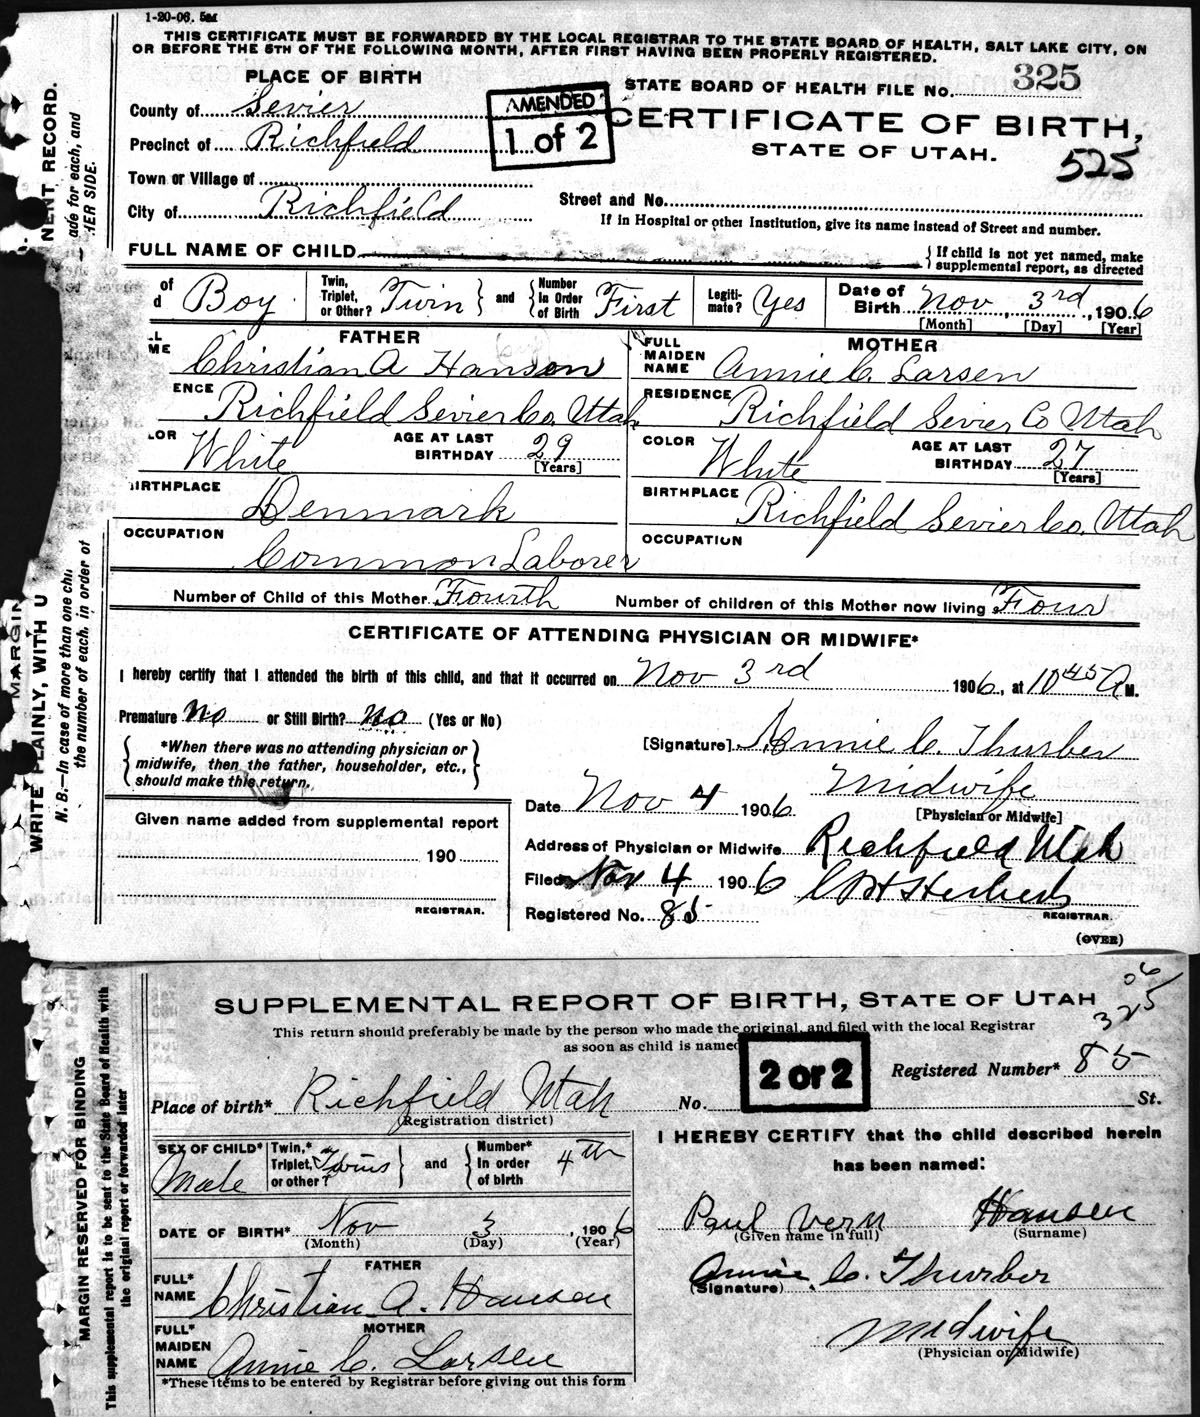 1-20-06. 5M
THIS CERTIFICATE MUST BE FORWARDED BY THE LOCAL REGISTRAR TO THE STATE BOARD OF HEALTH, SALT LAKE CITY, ON
OR BEFORE THE 5TH OF THE FOLLOWING MONTH, AFTER FIRST HAVING BEEN PROPERLY REGISTERED.
PLACE OF BIRTH
STATE BOARD OF HEALTH FILE No. 325
County of Sevier
AMENDED
1 of 2
CERTIFICATE OF BIRTH,
STATE OF UTAH.
525
Precinct of Richfield
Town or Village of
City of Richfield
Street and No.
If in Hospital or other Institution, give its name instead of Street and number.
FULL NAME OF CHILD
{ If child is not yet named, make
supplemental report, as directed
of Boy
Twin, Triplet, or Other? Twin } and { Number In Order of Birth First
Legiti-mate? Yes
Date of Birth Nov 3rd, 1906
[Month] [Day] [Year]
FATHER
Christian A Hanson
MOTHER
FULL MAIDEN NAME Annie C. Larsen
ENCE Richfield Sevier Co. Utah
RESIDENCE Richfield Sevier Co Utah
LOR White AGE AT LAST BIRTHDAY 29 [Years]
COLOR White AGE AT LAST BIRTHDAY 27 [Years]
BIRTHPLACE Denmark
BIRTHPLACE Richfield Sevier Co. Utah
OCCUPATION Common Laborer
OCCUPATION
Number of Child of this Mother Fourth Number of children of this Mother now living Four
CERTIFICATE OF ATTENDING PHYSICIAN OR MIDWIFE*
I hereby certify that I attended the birth of this child, and that it occurred on Nov 3rd 1906, at 10 45 A M.
Premature No or Still Birth? No (Yes or No)
{ *When there was no attending physician or
midwife, then the father, householder, etc.,
should make this return. }
[Signature] Annie C. Thurber
Midwife
[Physician or Midwife]
Date Nov 4 1906
Given name added from supplemental report
190
REGISTRAR.
Address of Physician or Midwife Richfield Utah
Filed Nov 4 1906
REGISTRAR.
Registered No. 85
(OVER)
NENT RECORD.
ade for each, and
HER SIDE.
MARGIN
WRITE PLAINLY, WITH U
N. B.—In case of more than one chi
the number of each, in order of
SUPPLEMENTAL REPORT OF BIRTH, STATE OF UTAH
06
325
This return should preferably be made by the person who made the original, and filed with the local Registrar
as soon as child is named
2 of 2
Registered Number* 85
Place of birth* Richfield Utah No. St.
(Registration district)
SEX OF CHILD* Male
Twin,* Triplet, or other? Twins } and { Number* In order of birth 4th
DATE OF BIRTH* Nov 3, 1906
(Month) (Day) (Year)
FATHER
FULL* NAME Christian A. Hansen
MOTHER
FULL* MAIDEN NAME Annie C. Larsen
*These items to be entered by Registrar before giving out this form
I HEREBY CERTIFY that the child described herein
has been named:
Paul Vern Hansen
(Given name in full) (Surname)
Annie C. Thurber
(Signature)
Midwife
(Physician or Midwife)
MARGIN RESERVED FOR BINDING
This supplemental report is to be sent to the State Board of Health with
the original report or forwarded later